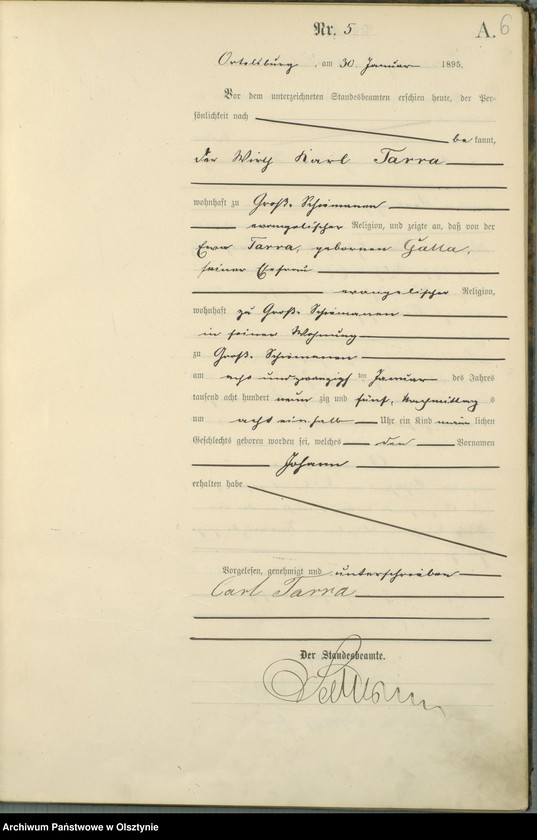 Nr. 5
A. 6
Ortelsburg, am 30 Januar 1895.
Vor dem unterzeichneten Standesbeamten erschien heute, der Per-
sönlichkeit nach
be kannt,
der Wirth Karl Tarra
wohnhaft zu Groß-Schiemanen
evangelischer Religion, und zeigte an, daß von der
Ewa Tarra, gebornen Galla,
seiner Ehefrau
evangelischer Religion,
wohnhaft zu Groß-Schiemanen
in seiner Wohnung
zu Groß-Schiemanen
am acht und zwanzigsten Januar des Jahres
tausend acht hundert neun zig und fünf, Nachmittag s
um acht einhalb Uhr ein Kind männ lichen
Geschlechts geboren worden sei, welches den Vornamen
Johann
erhalten habe
Vorgelesen, genehmigt und unterschrieben
Carl Tarra
Der Standesbeamte.
Archiwum Państwowe w Olsztynie